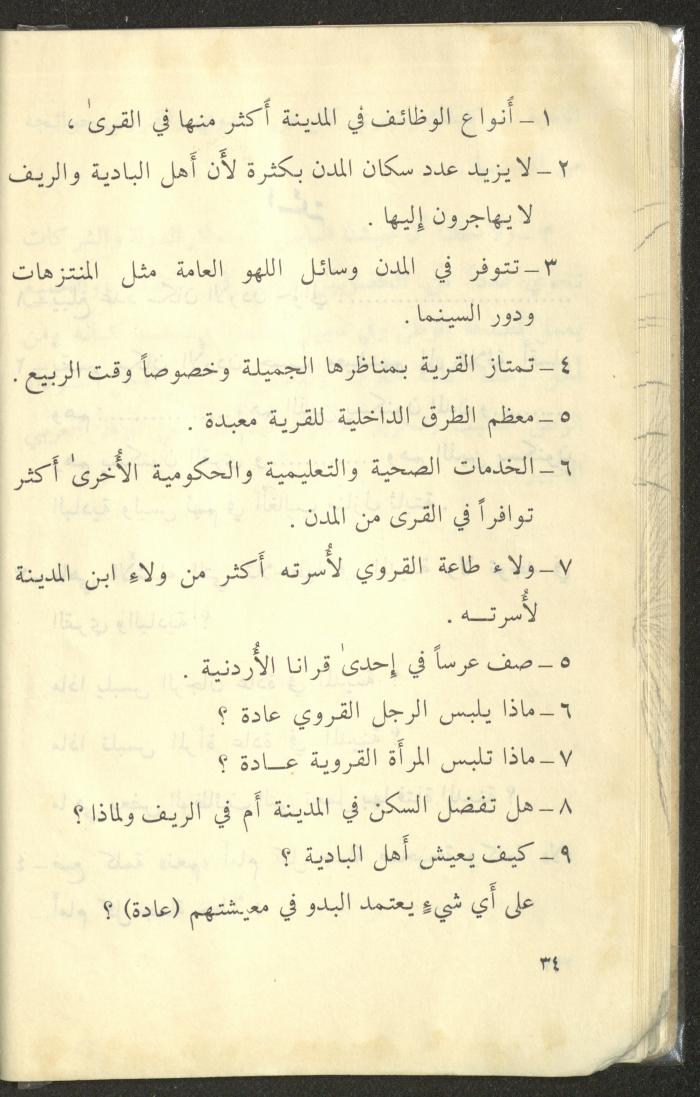 ١ ـ أَنواع الوظائف في المدينة أَكثر منها في القرىٰ ،
٢ ـ لا يزيد عدد سكان المدن بكثرة لأَن أَهل البادية والريف
لا يهاجرون إِليها .
٣ ـ تتوفر في المدن وسائل اللهو العامة مثل المنتزهات
ودور السينما .
٤ ـ تمتاز القرية بمناظرها الجميلة وخصوصاً وقت الربيع .
٥ ـ معظم الطرق الداخلية للقرية معبدة .
٦ ـ الخدمات الصحية والتعليمية والحكومية الأُخرىٰ أَكثر
توافراً في القرى من المدن .
٧ ـ ولاء طاعة القروي لأُسرته أَكثر من ولاءِ ابن المدينة
لأُسرتـــه .
٥ ـ صف عرساً في إِحدىٰ قرانا الأُردنية .
٦ ـ ماذا يلبس الرجل القروي عادة ؟
٧ ـ ماذا تلبس المرأَة القروية عـــادة ؟
٨ ـ هل تفضل السكن في المدينة أَم في الريف ولماذا ؟
٩ ـ كيف يعيش أَهل البادية ؟
على أَي شيءٍ يعتمد البدو في معيشتهم (عادة) ؟
٣٤